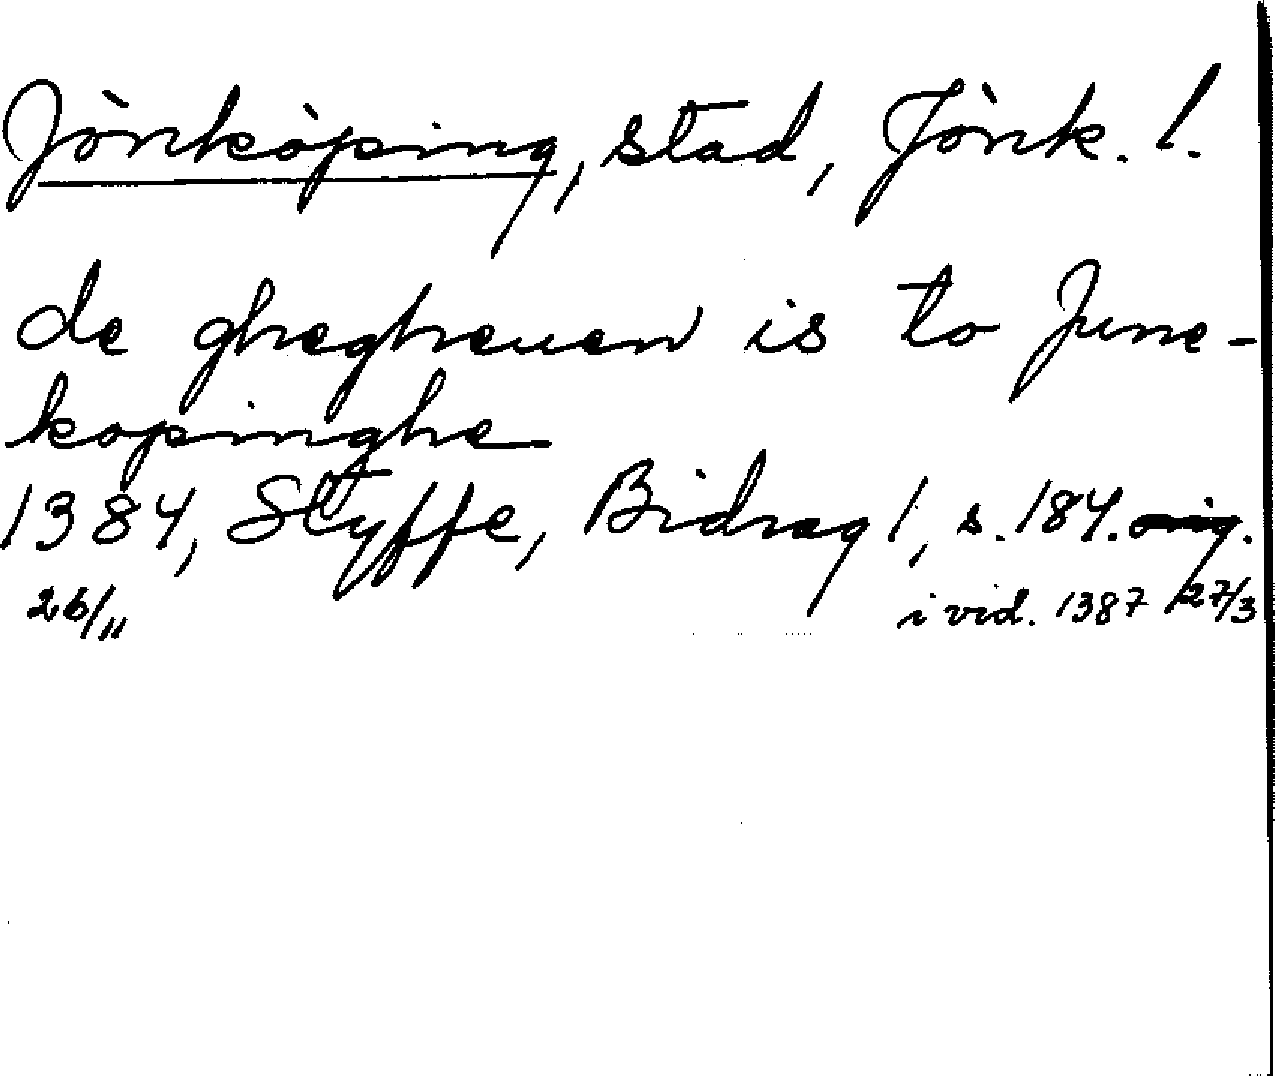 Jönköping, stad, Jönk. l.
de ghegheuen is to June-
kopinghe
1384, Styffe, Bidrag 1, s. 184. orig.
26/11 i vid. 1387 27/3